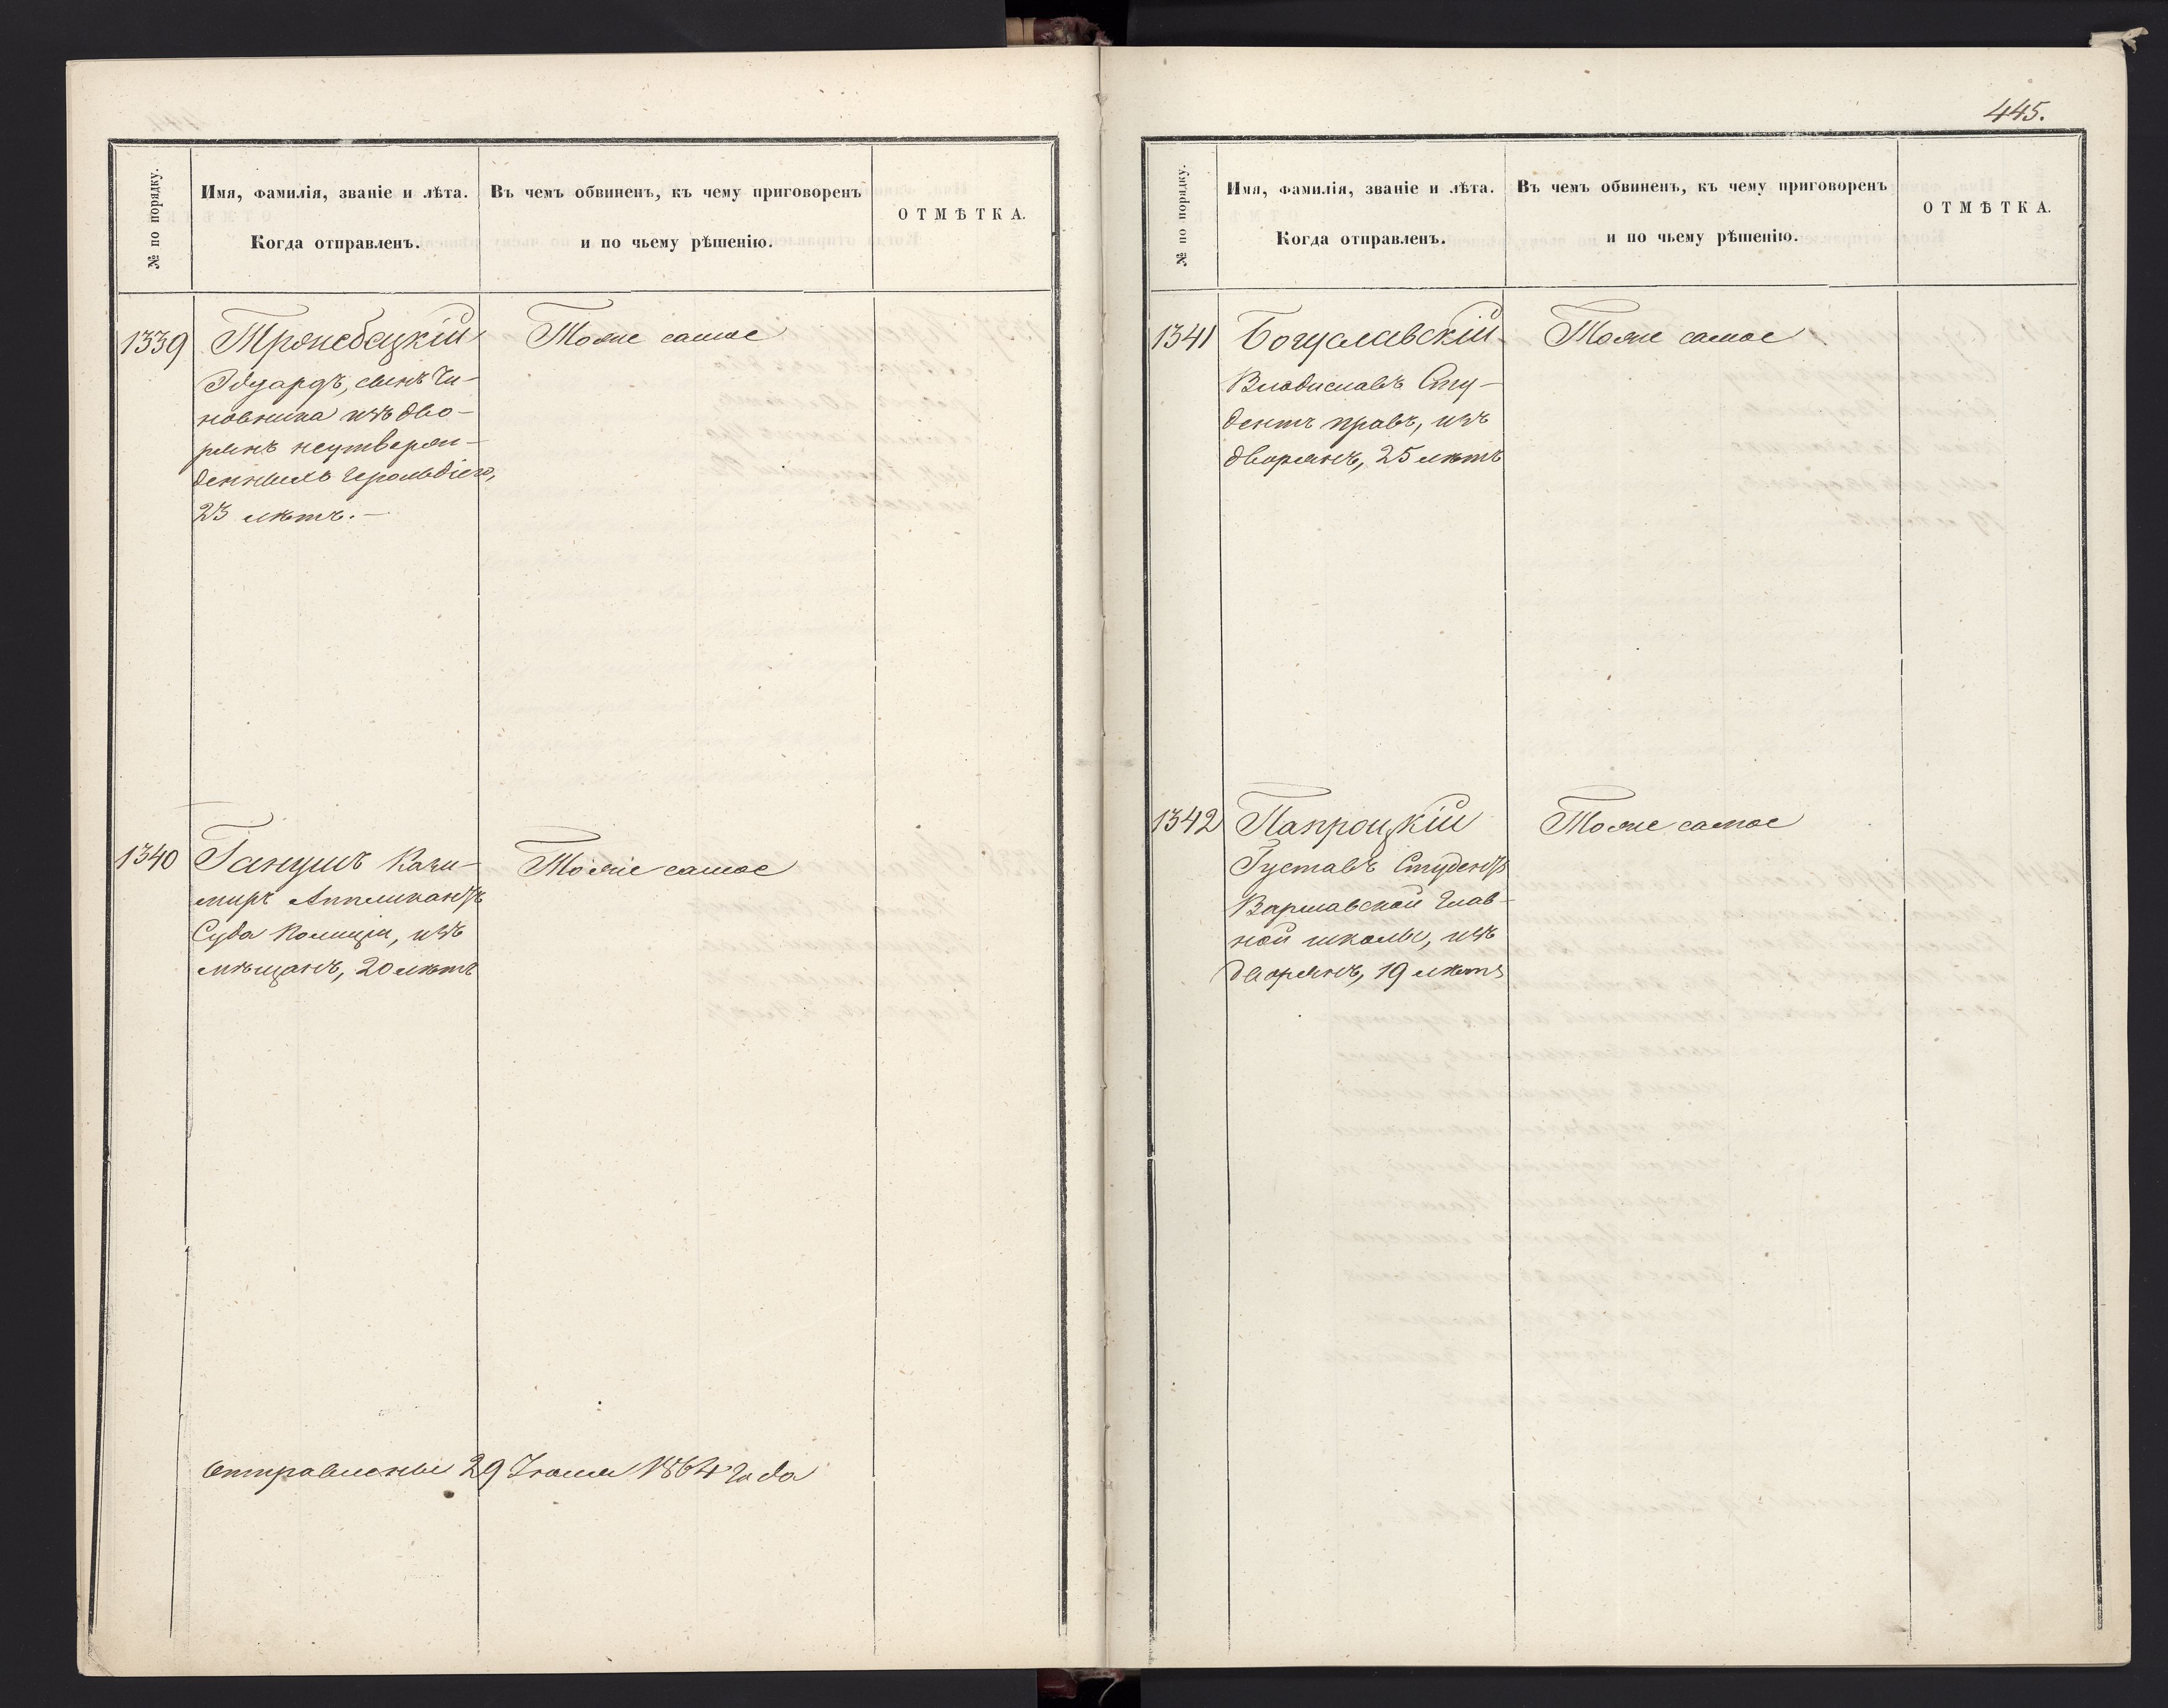 № по порядку.
Имя, фамилія, званіе и лѣта.
Когда отправленъ.
Въ чемъ обвиненъ, къ чему приговоренъ
и по чьему рѣшенію.
ОТМѢТКА.
1339
Тржебецкій
Эдуардъ, сынъ Чи-
новника изъ дво-
рянъ неутверж-
денныхъ Герольдіею,
23 лѣтъ.—
Тоже самое
1340
Ганушъ Кази-
миръ Аппликантъ
Суда Полиціи, изъ
мѣщанъ, 20 лѣтъ
Тоже самое
Отправлены 29 Іюля 1864 года
445.
№ по порядку.
Имя, фамилія, званіе и лѣта.
Когда отправленъ.
Въ чемъ обвиненъ, къ чему приговоренъ
и по чьему рѣшенію.
ОТМѢТКА.
1341
Богуславскій
Владиславъ Сту-
дентъ правъ, изъ
дворянъ, 25 лѣтъ
Тоже самое
1342
Папроцкій
Густавъ Студентъ
Варшавской Глав-
ной школы, изъ
дворянъ, 19 лѣтъ
Тоже самое